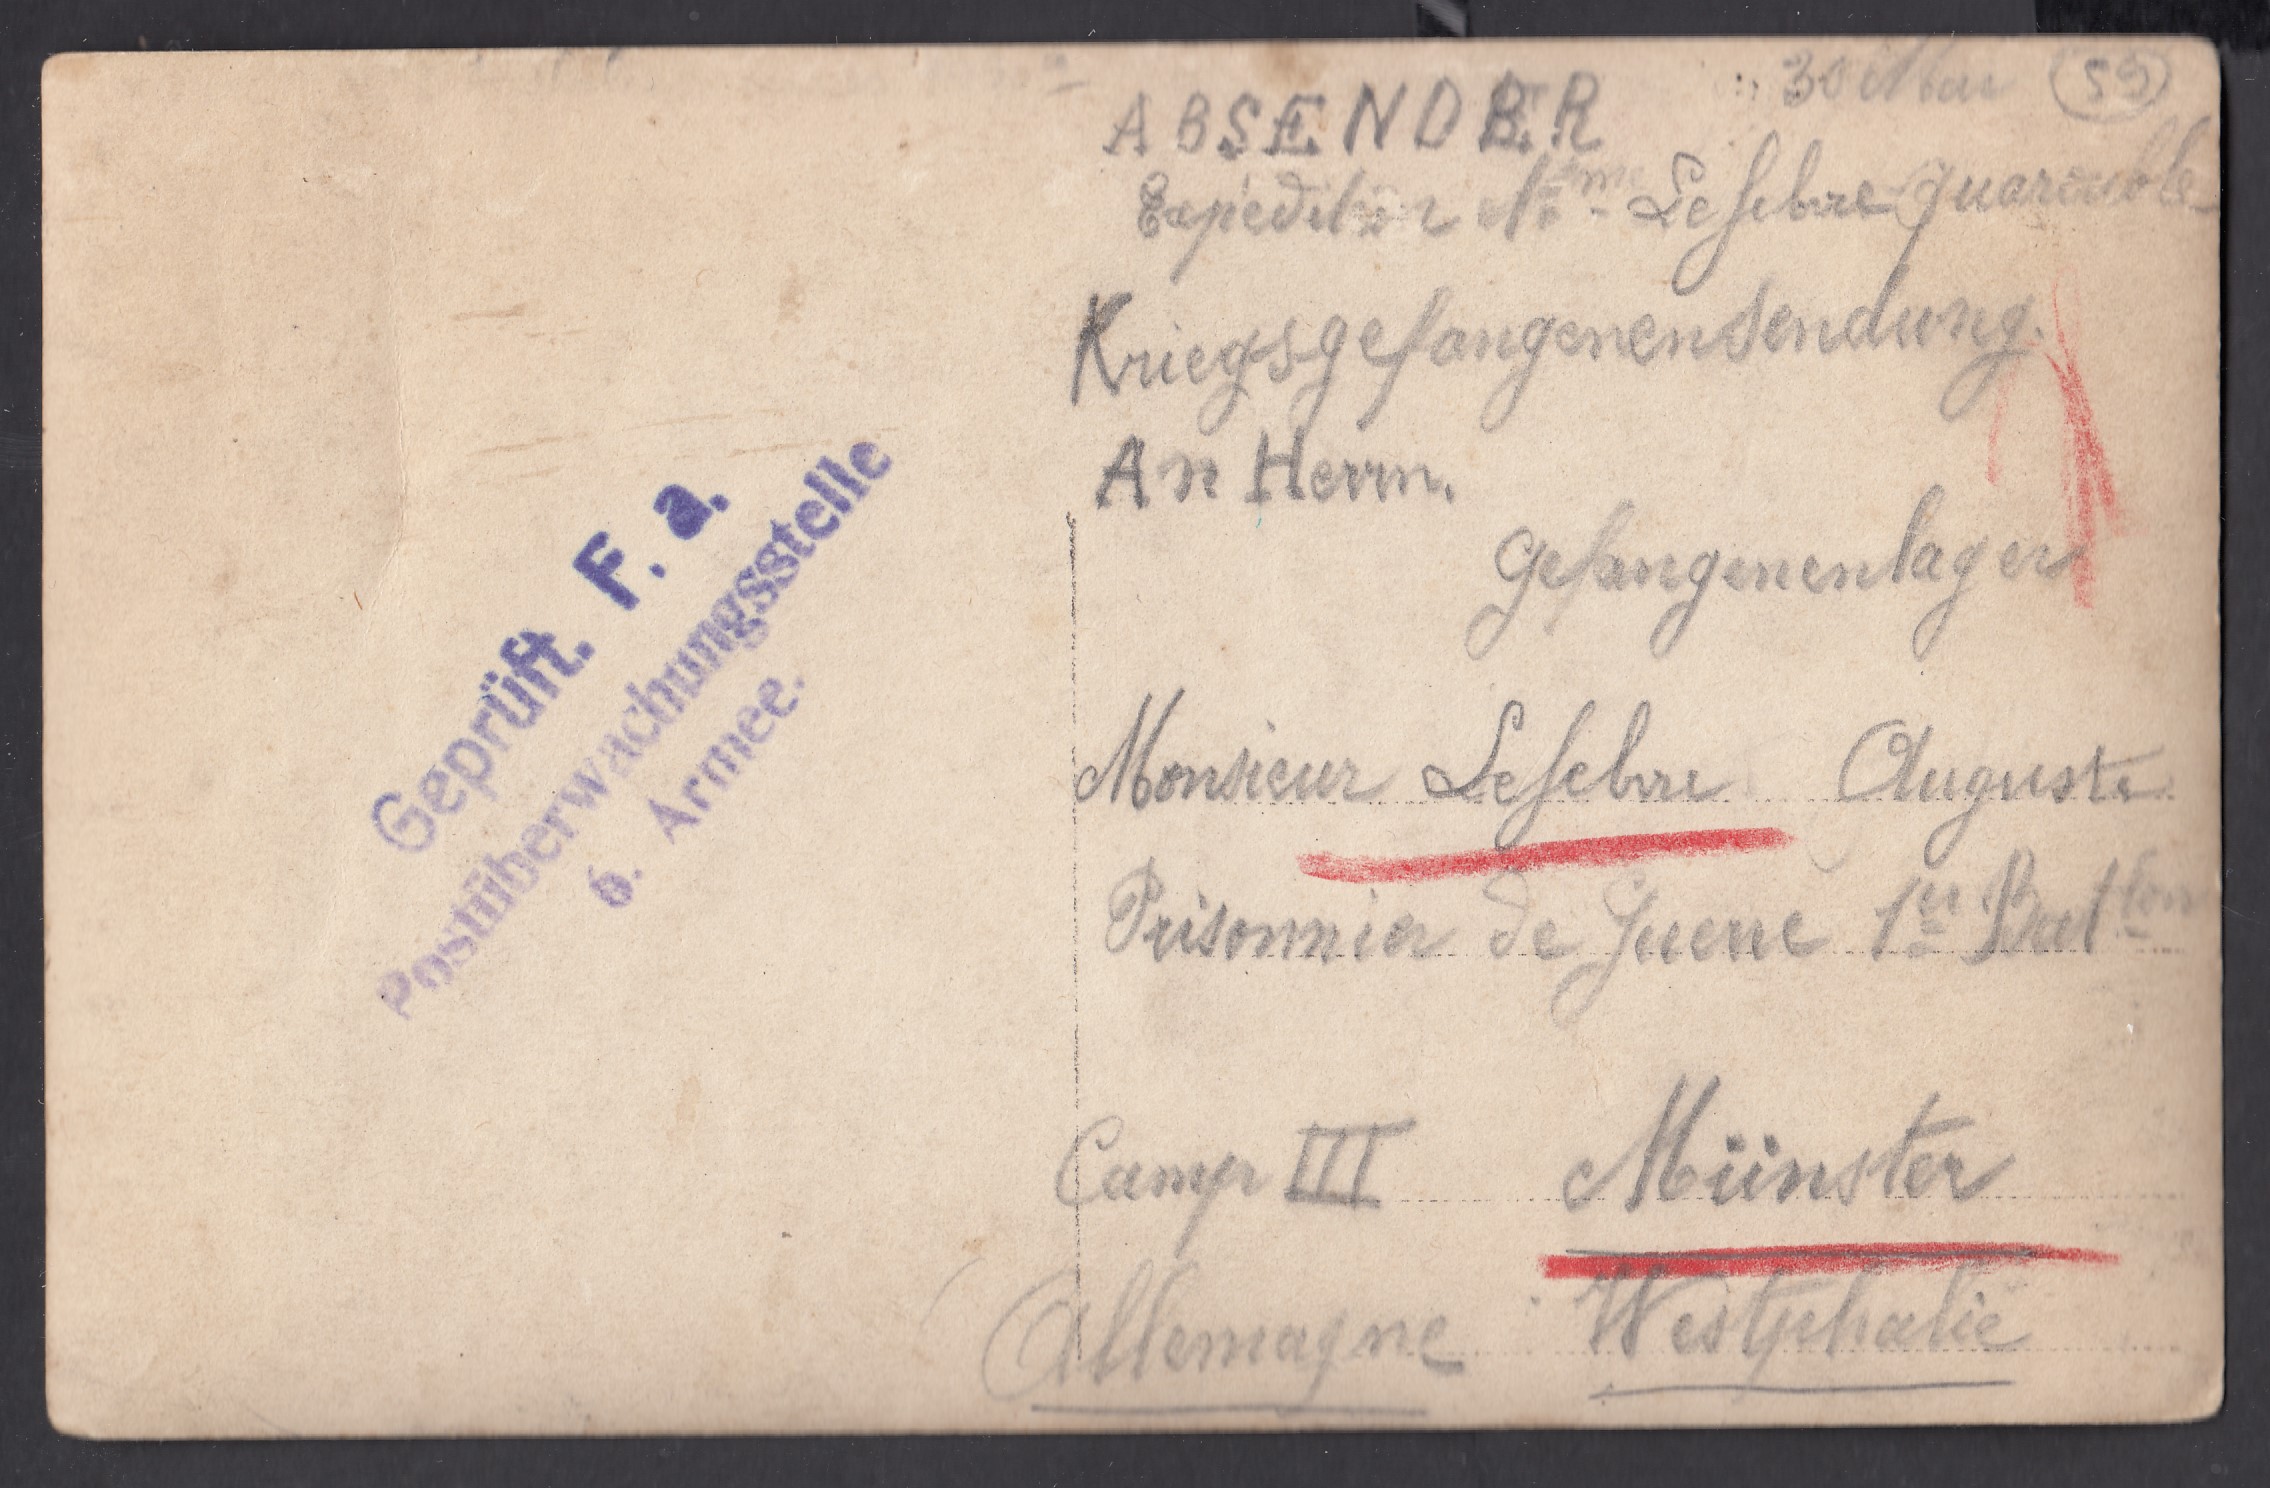 Geprüft. F. a.
Postüberwachungsstelle
6. Armee.
30 Mai 59
ABSENDER
Expéditeur Mme Lefebvre Quarouble
Kriegsgefangenensendung.
An Herrn.
Gefangenenlager
Monsieur Lefebvre Auguste
Prisonnier de Guerre 1er Batton
Camp III Münster
Allemagne Westphalie